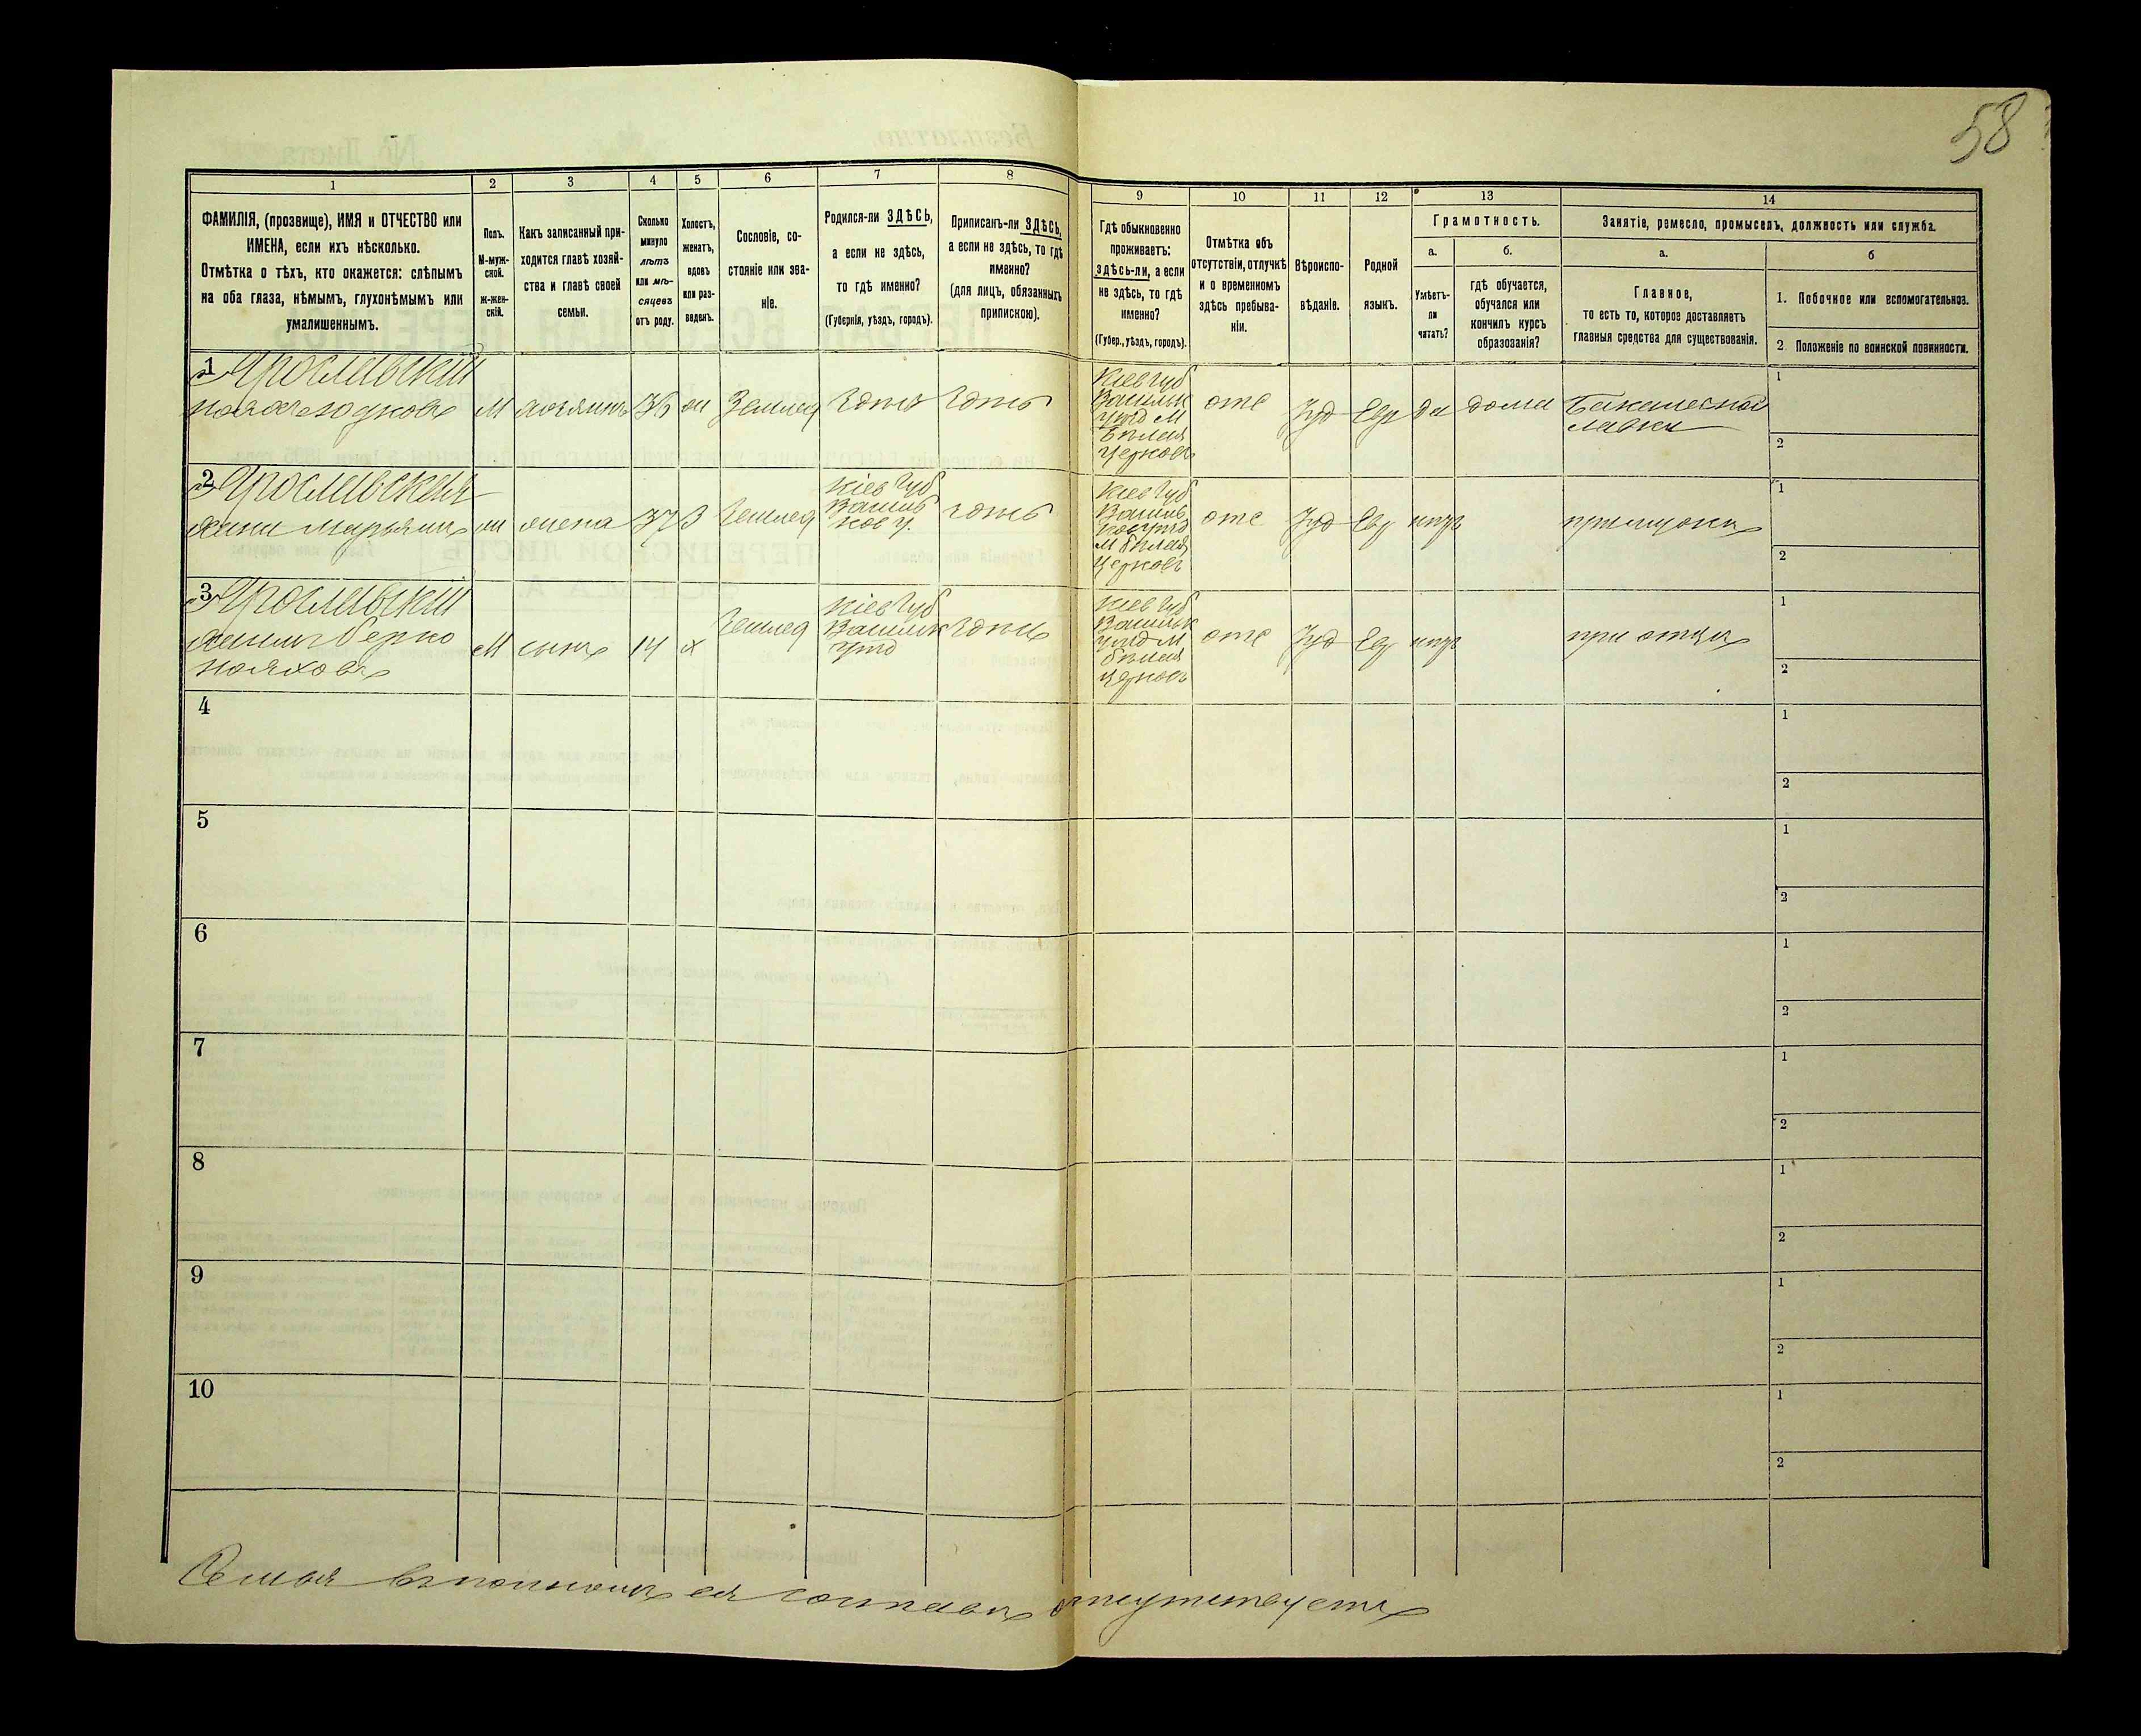 58
1 2 3 4 5 6 7 8 9 10 11 12 13 14
ФАМИЛІЯ, (прозвище), ИМЯ и ОТЧЕСТВО или
ИМЕНА, если ихъ нѣсколько.
Отмѣтка о тѣхъ, кто окажется: слѣпымъ
на оба глаза, нѣмымъ, глухонѣмымъ или
умалишеннымъ.
Полъ.
М-муж-
ской.
ж-жен-
скій.
Какъ записанный при-
ходится главѣ хозяй-
ства и главѣ своей
семьи.
Сколько
минуло
лѣтъ
или мѣ-
сяцевъ
отъ роду.
Холостъ,
женатъ,
вдовъ
или раз-
веденъ.
Сословіе, со-
стояніе или зва-
ніе.
Родился-ли ЗДѢСЬ,
а если не здѣсь,
то гдѣ именно?
(Губернія, уѣздъ, городъ).
Приписанъ-ли ЗДѢСЬ,
а если не здѣсь, то гдѣ
именно?
(для лицъ, обязанныхъ
припискою).
Гдѣ обыкновенно
проживаетъ:
здѣсь-ли, а если
не здѣсь, то гдѣ
именно?
(Губер., уѣздъ, городъ).
Отмѣтка объ
отсутствіи, отлучкѣ
и о временномъ
здѣсь пребыва-
ніи.
Вѣроиспо-
вѣданіе.
Родной
языкъ.
Грамотность.
а.
Умѣетъ-
ли
читать?
б.
гдѣ обучается,
обучался или
кончилъ курсъ
образованія?
Занятіе, ремесло, промыселъ, должность или служба.
а.
Главное,
то есть то, которое доставляетъ
главныя средства для существованія.
б
1. Побочное или вспомогательное.
2 Положеніе по воинской повинности.
1 Ярославскій
М хозяинъ 36 Землед здѣсь здѣсь
Кіев губ
Васильк
уѣзд М
Бѣлая
Церковь
отс Іуд Евр да дома
Бакалейной
лавки
1
2
2 Ярославская
жена 37 З Землед
Кіев губ
Васильк
здѣсь
Кіев губ
М Бѣлая
Церковь
отс Іуд Евр нѣтъ
при мужѣ
1
2
3 Ярославскій
Берко
М сынъ 14 х Землед
Кіев губ
Васильк
уѣзд
здѣсь
Кіев губ
Васильк
уѣзд М
Бѣлая
Церковь
отс Іуд Евр нѣтъ
при отцѣ
1
2
4
1
2
5
1
2
6
1
2
7
1
2
8
1
2
9
1
2
10
1
2
Семья въ полномъ ея составѣ отсутствуетъ